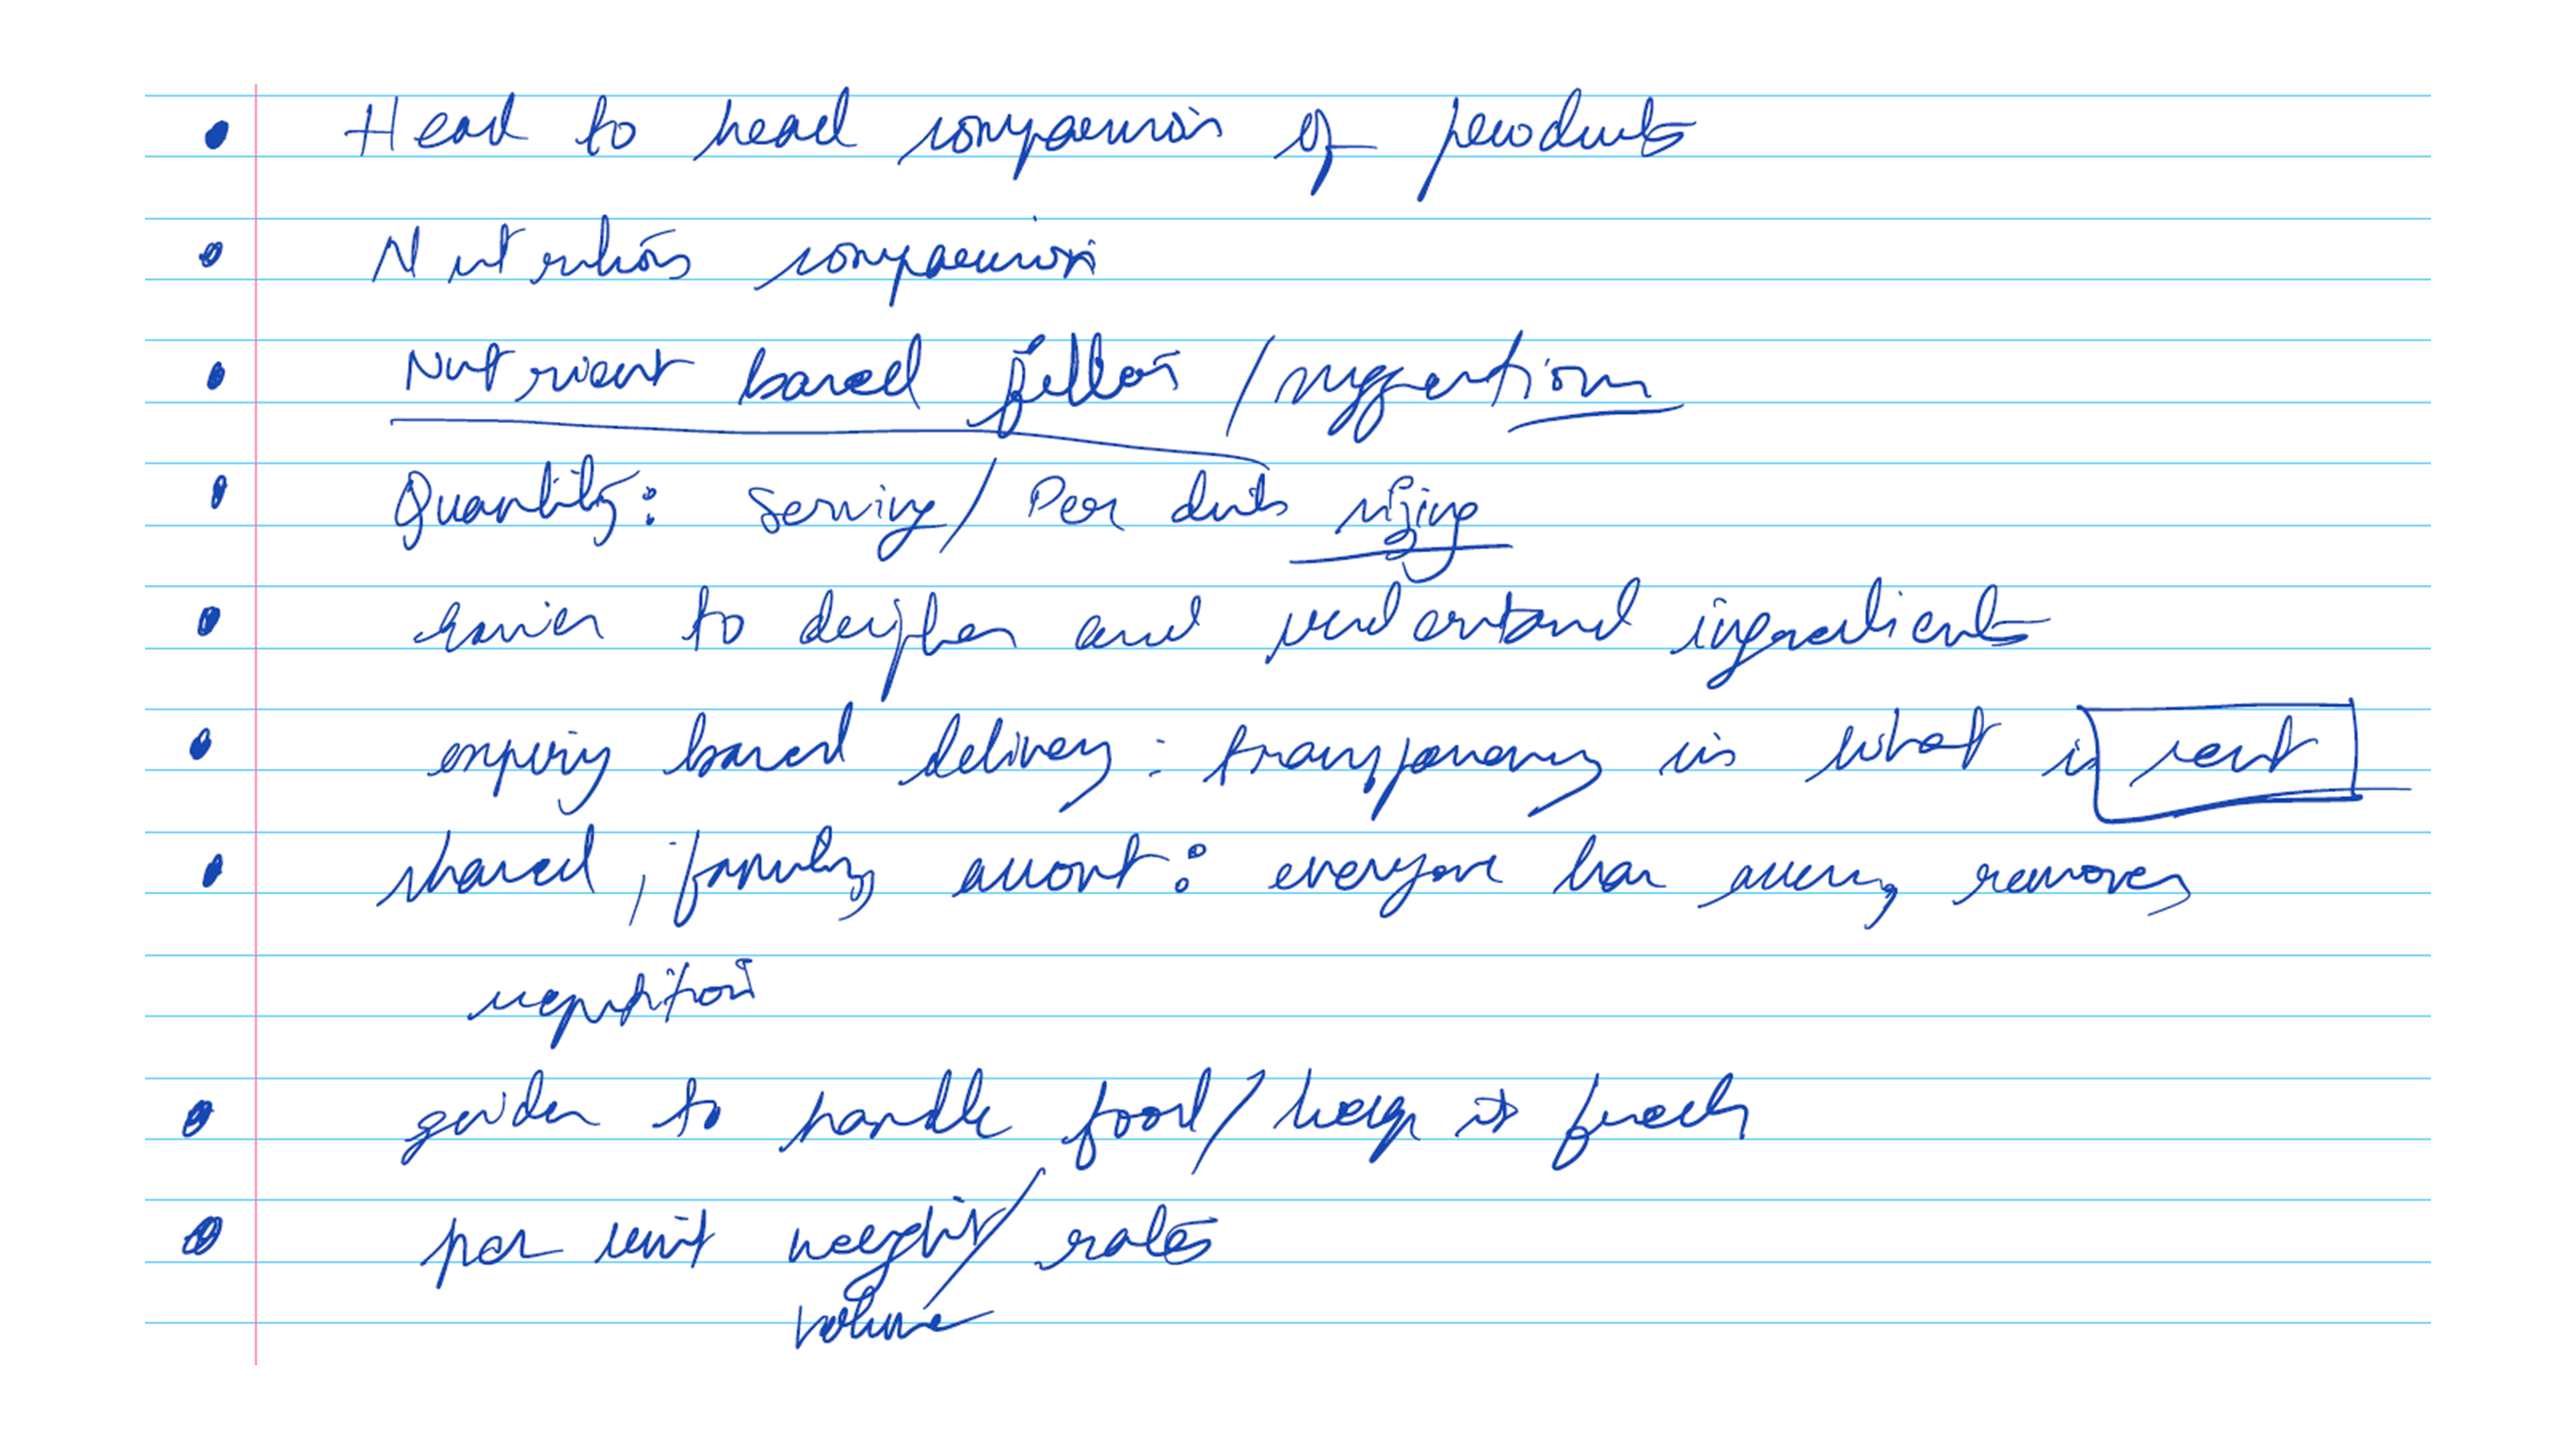 • Head to head comparison of products
• Nutrition comparison
• Nutrient based filters / suggestions
• Quantity: Serving / Per units sizing
• easier to decipher and understand ingredients
• expiry based delivery: transparency in what is sent
• shared, family account: everyone has access, removes
repetition
• guides to handle food / keep it fresh
• per unit weight / rates
volume